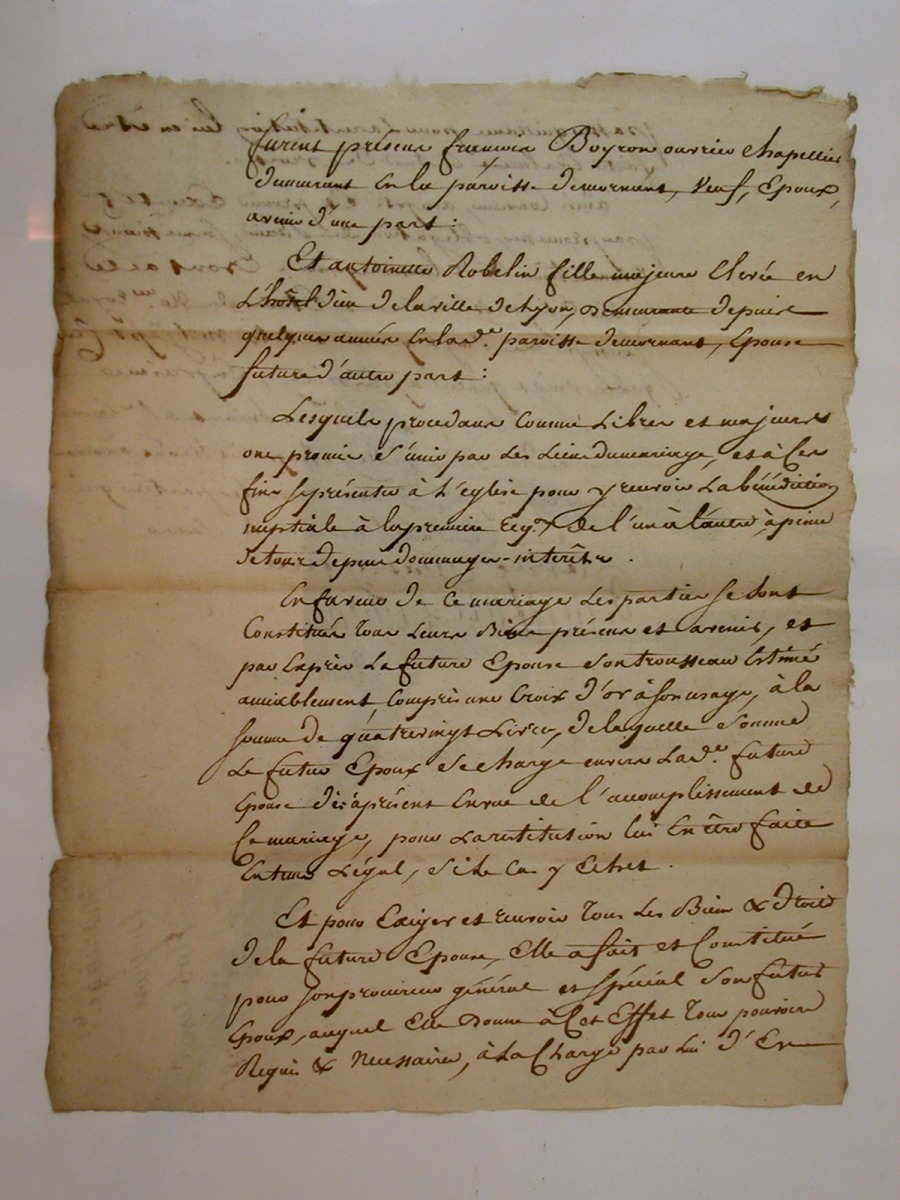 furent présens françois Boyron ouvrier chapellier
demeurant en la paroisse demornant, Veuf, Epoux,
avenir d'une part :
Et antoinette Robelin fille majeure Elevée en
L'hôtel dieu de la ville de Lyon, demeurante depuis
quelques années en lad.e paroisse demornant, Epouse
future d'autre part :
Lesquels procedans comme Libres et majeurs
ont promis s'unir par les Liens du mariage, et à ces
fins se présenter à L'eglise pour y recevoir La bénédiction
nuptiale à la premiere req.on de l'un à l'autre, à peine
de tous depens dommages-intérêts .
En faveur de ce mariage Les parties se sont
Constitués tous Leurs Biens présens et avenir, et
par Exprès La future Epouse son trousseau Estimé
amiablement, compris une Croix d'or à son usage, à la
somme de quatrevingt Livres, de laquelle somme
Le futur Epoux se charge envers Lad.e future
Epouse dès àprésent En vue de l'accomplissement de
Ce mariage, pour La restitution lui En être faite
En tems Légal, si le Cas y Echet .
Et pour Exiger et recevoir tous Les Biens & droits
de la future Epouse, Elle a fait et Constitué
pour son procureur général et spécial son futur
Epoux, auquel Elle Donne à Cet Effet tous pouvoirs
Requis & Necessaires, à La Charge par Lui d'En